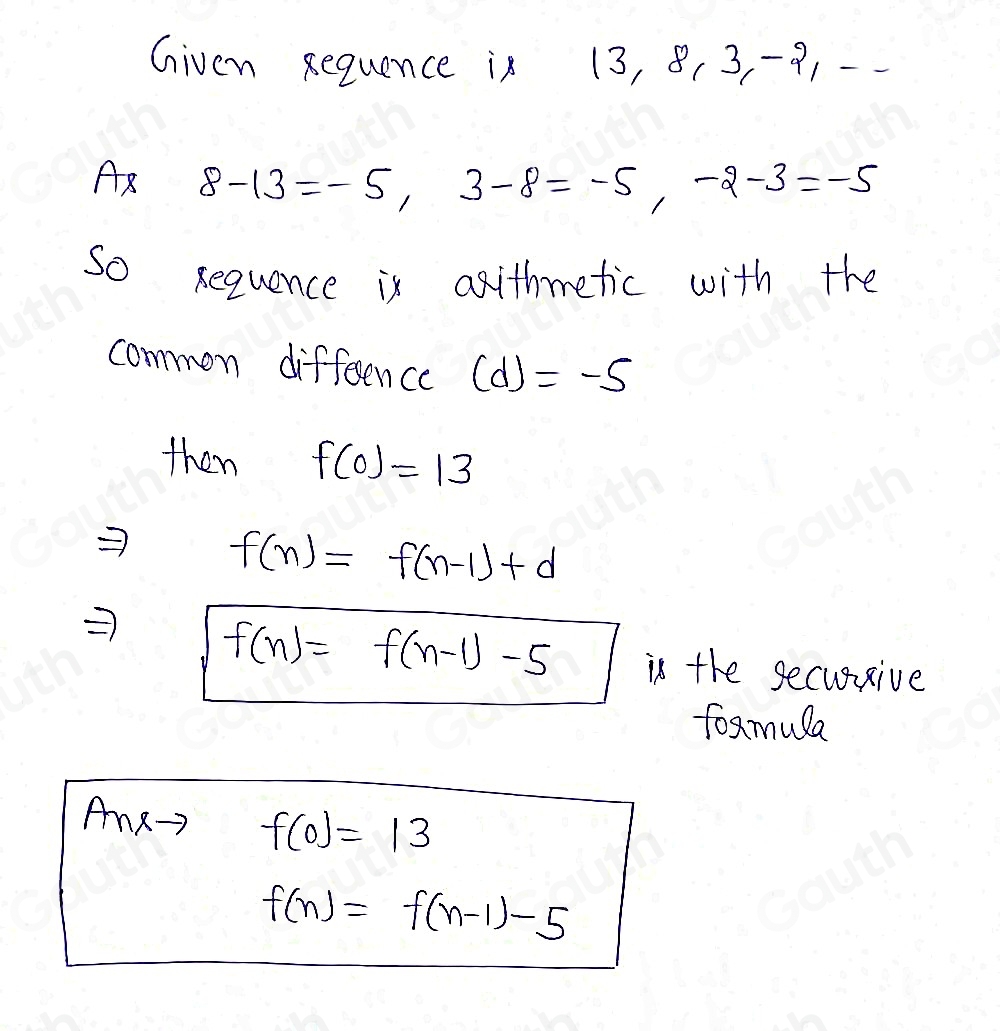 Given sequence is 13, 8, 3, -2, --
As 8-13=-5, 3-8=-5, -2-3=-5
So sequence is arithmetic with the
common difference (d) = -5
then f(0) = 13
⇒ f(n) = f(n-1) + d
⇒ f(n) = f(n-1) - 5 is the recursive
formula
Ans→ f(0) = 13
f(n) = f(n-1) - 5